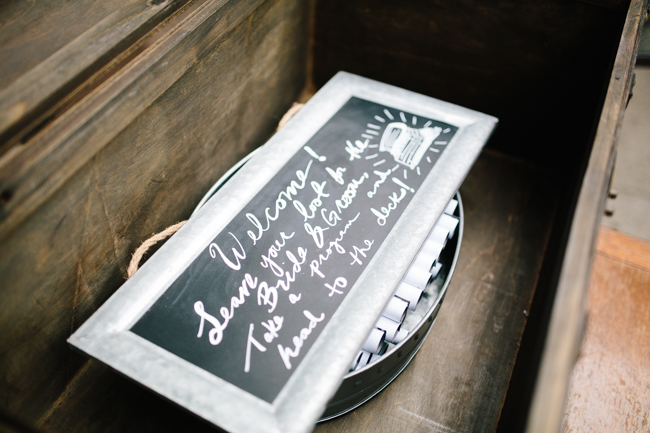 Welcome!
Leave your loot for the
Bride & Groom,
Take a program and
head to the decks!